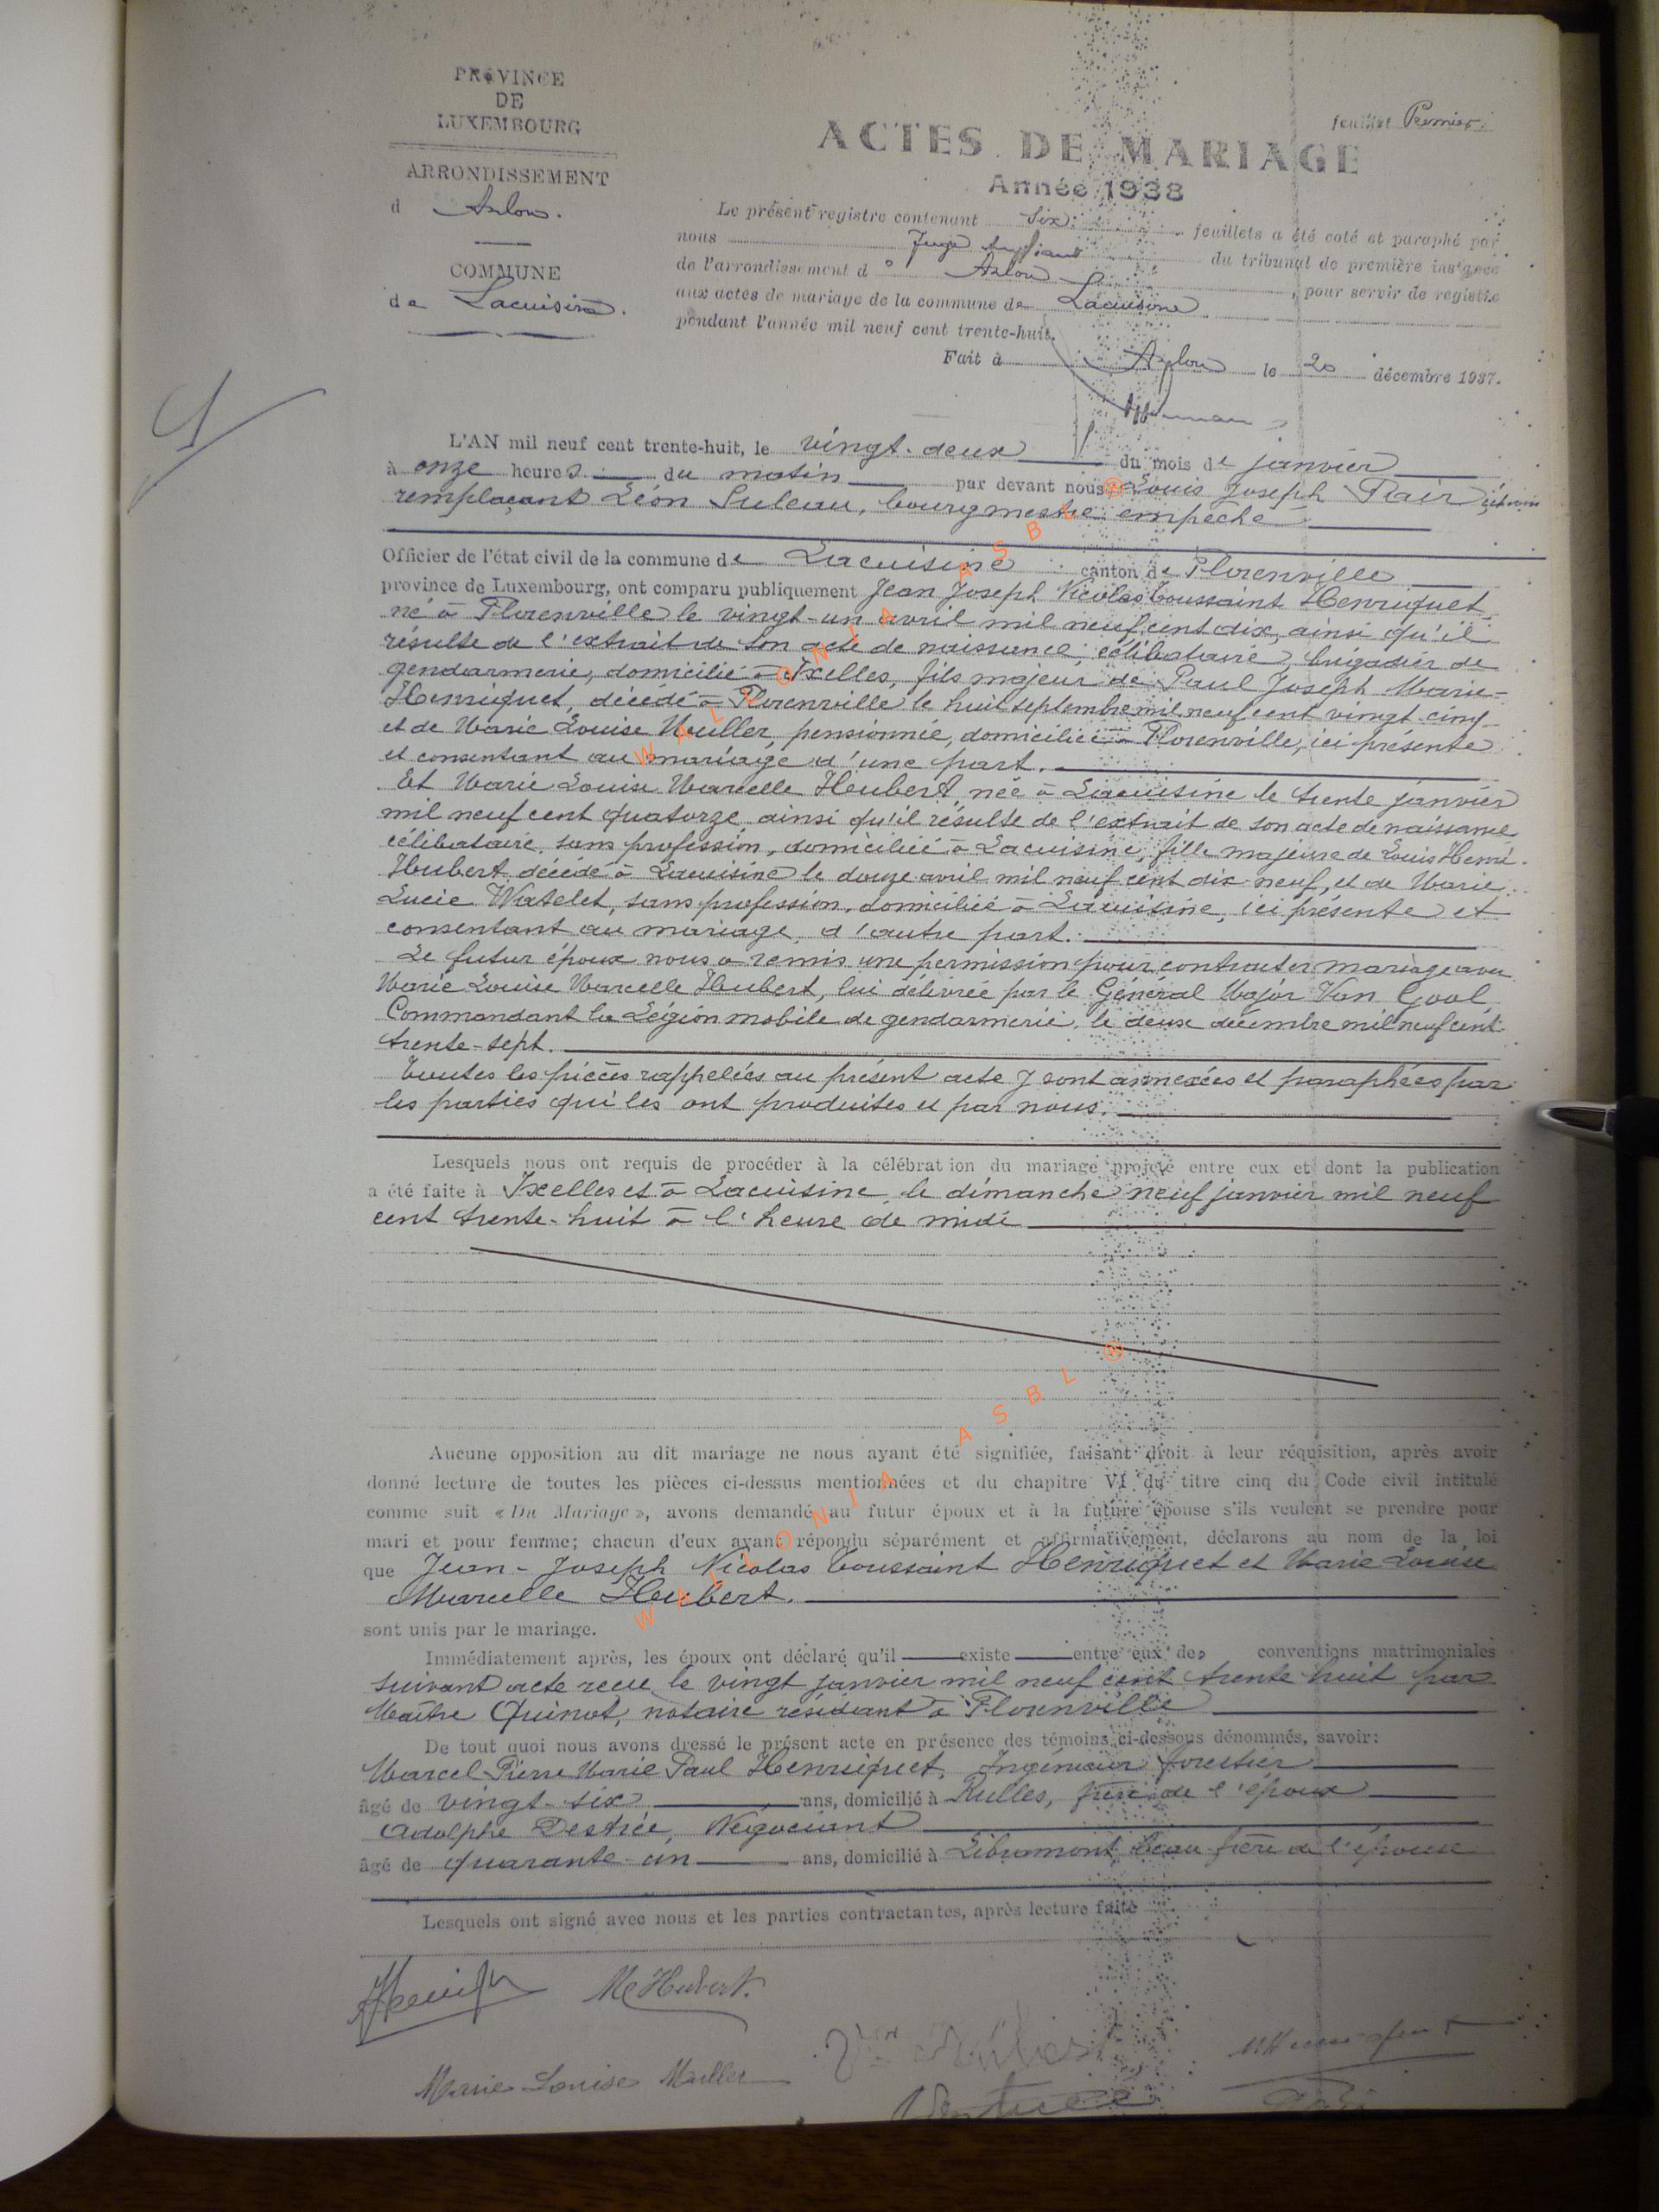 PROVINCE
DE
LUXEMBOURG
ARRONDISSEMENT
d Arlon.
COMMUNE
de Lacuisine.
feuillet Premier.
ACTES DE MARIAGE
Année 1938
Le présent registre contenant six feuillets a été coté et paraphé par
nous Juge du tribunal de première instance
de l'arrondissement d' Arlon, pour servir de registre
aux actes de mariage de la commune de Lacuisine
pendant l'année mil neuf cent trente-huit.
Fait à Arlon le 20 décembre 1937.
1
L'AN mil neuf cent trente-huit, le vingt-deux du mois de janvier
à onze heures du matin par devant nous Louis Joseph Plair échevin
remplaçant Léon Suleau, bourgmestre empêché
Officier de l'état civil de la commune de Lacuisine canton de Florenville
province de Luxembourg, ont comparu publiquement Jean Joseph Nicolas Toussaint Henriquet
né à Florenville le vingt-un avril mil neuf cent dix, ainsi qu'il
résulte de l'extrait de son acte de naissance, célibataire, brigadier de
gendarmerie, domicilié à Ixelles, fils majeur de Paul Joseph Marie
Henriquet, décédé à Florenville le huit septembre mil neuf cent vingt-cinq
et de Marie Louise Muller, pensionnée, domiciliée à Florenville, ici présente
et consentant au mariage d'une part.
Et Marie Louise Marcelle Hubert, née à Lacuisine le trente janvier
mil neuf cent quatorze, ainsi qu'il résulte de l'extrait de son acte de naissance
célibataire, sans profession, domiciliée à Lacuisine, fille majeure de Louis Henri
Hubert décédé à Lacuisine le douze avril mil neuf cent dix-neuf, et de Marie
Lucie Watelet, sans profession, domiciliée à Lacuisine, ici présente et
consentant au mariage, d'autre part.
Le futur époux nous a remis une permission pour contracter mariage avec
Marie Louise Marcelle Hubert, lui délivrée par le Général Major Van Gool
Commandant la Légion mobile de gendarmerie, le deux décembre mil neuf cent
trente-sept.
Toutes les pièces rappelées au présent acte y sont annexées et paraphées par
les parties qui les ont produites et par nous.
Lesquels nous ont requis de procéder à la célébration du mariage projeté entre eux et dont la publication
a été faite à Ixelles et à Lacuisine, le dimanche neuf janvier mil neuf
cent trente-huit à l'heure de midi
Aucune opposition au dit mariage ne nous ayant été signifiée, faisant droit à leur réquisition, après avoir
donné lecture de toutes les pièces ci-dessus mentionnées et du chapitre VI du titre cinq du Code civil intitulé
comme suit « Du Mariage », avons demandé au futur époux et à la future épouse s'ils veulent se prendre pour
mari et pour femme; chacun d'eux ayant répondu séparément et affirmativement, déclarons au nom de la loi
que Jean-Joseph Nicolas Toussaint Henriquet et Marie Louise
Marcelle Hubert.
sont unis par le mariage.
Immédiatement après, les époux ont déclaré qu'il existe entre eux des conventions matrimoniales
suivant acte reçu le vingt janvier mil neuf cent trente huit par
Maître Quinot, notaire résidant à Florenville
De tout quoi nous avons dressé le présent acte en présence des témoins ci-dessous dénommés, savoir:
Marcel Pierre Marie Paul Henriquet, Ingénieur forestier
âgé de vingt-six ans, domicilié à Rulles, frère de l'époux
Adolphe Destrée, Négociant
âgé de quarante-un ans, domicilié à Libramont, beau-frère de l'épouse
Lesquels ont signé avec nous et les parties contractantes, après lecture faite
M Hubert.
Marie Louise Muller
WALLONIA ASBL ®
WALLONIA ASBL ®